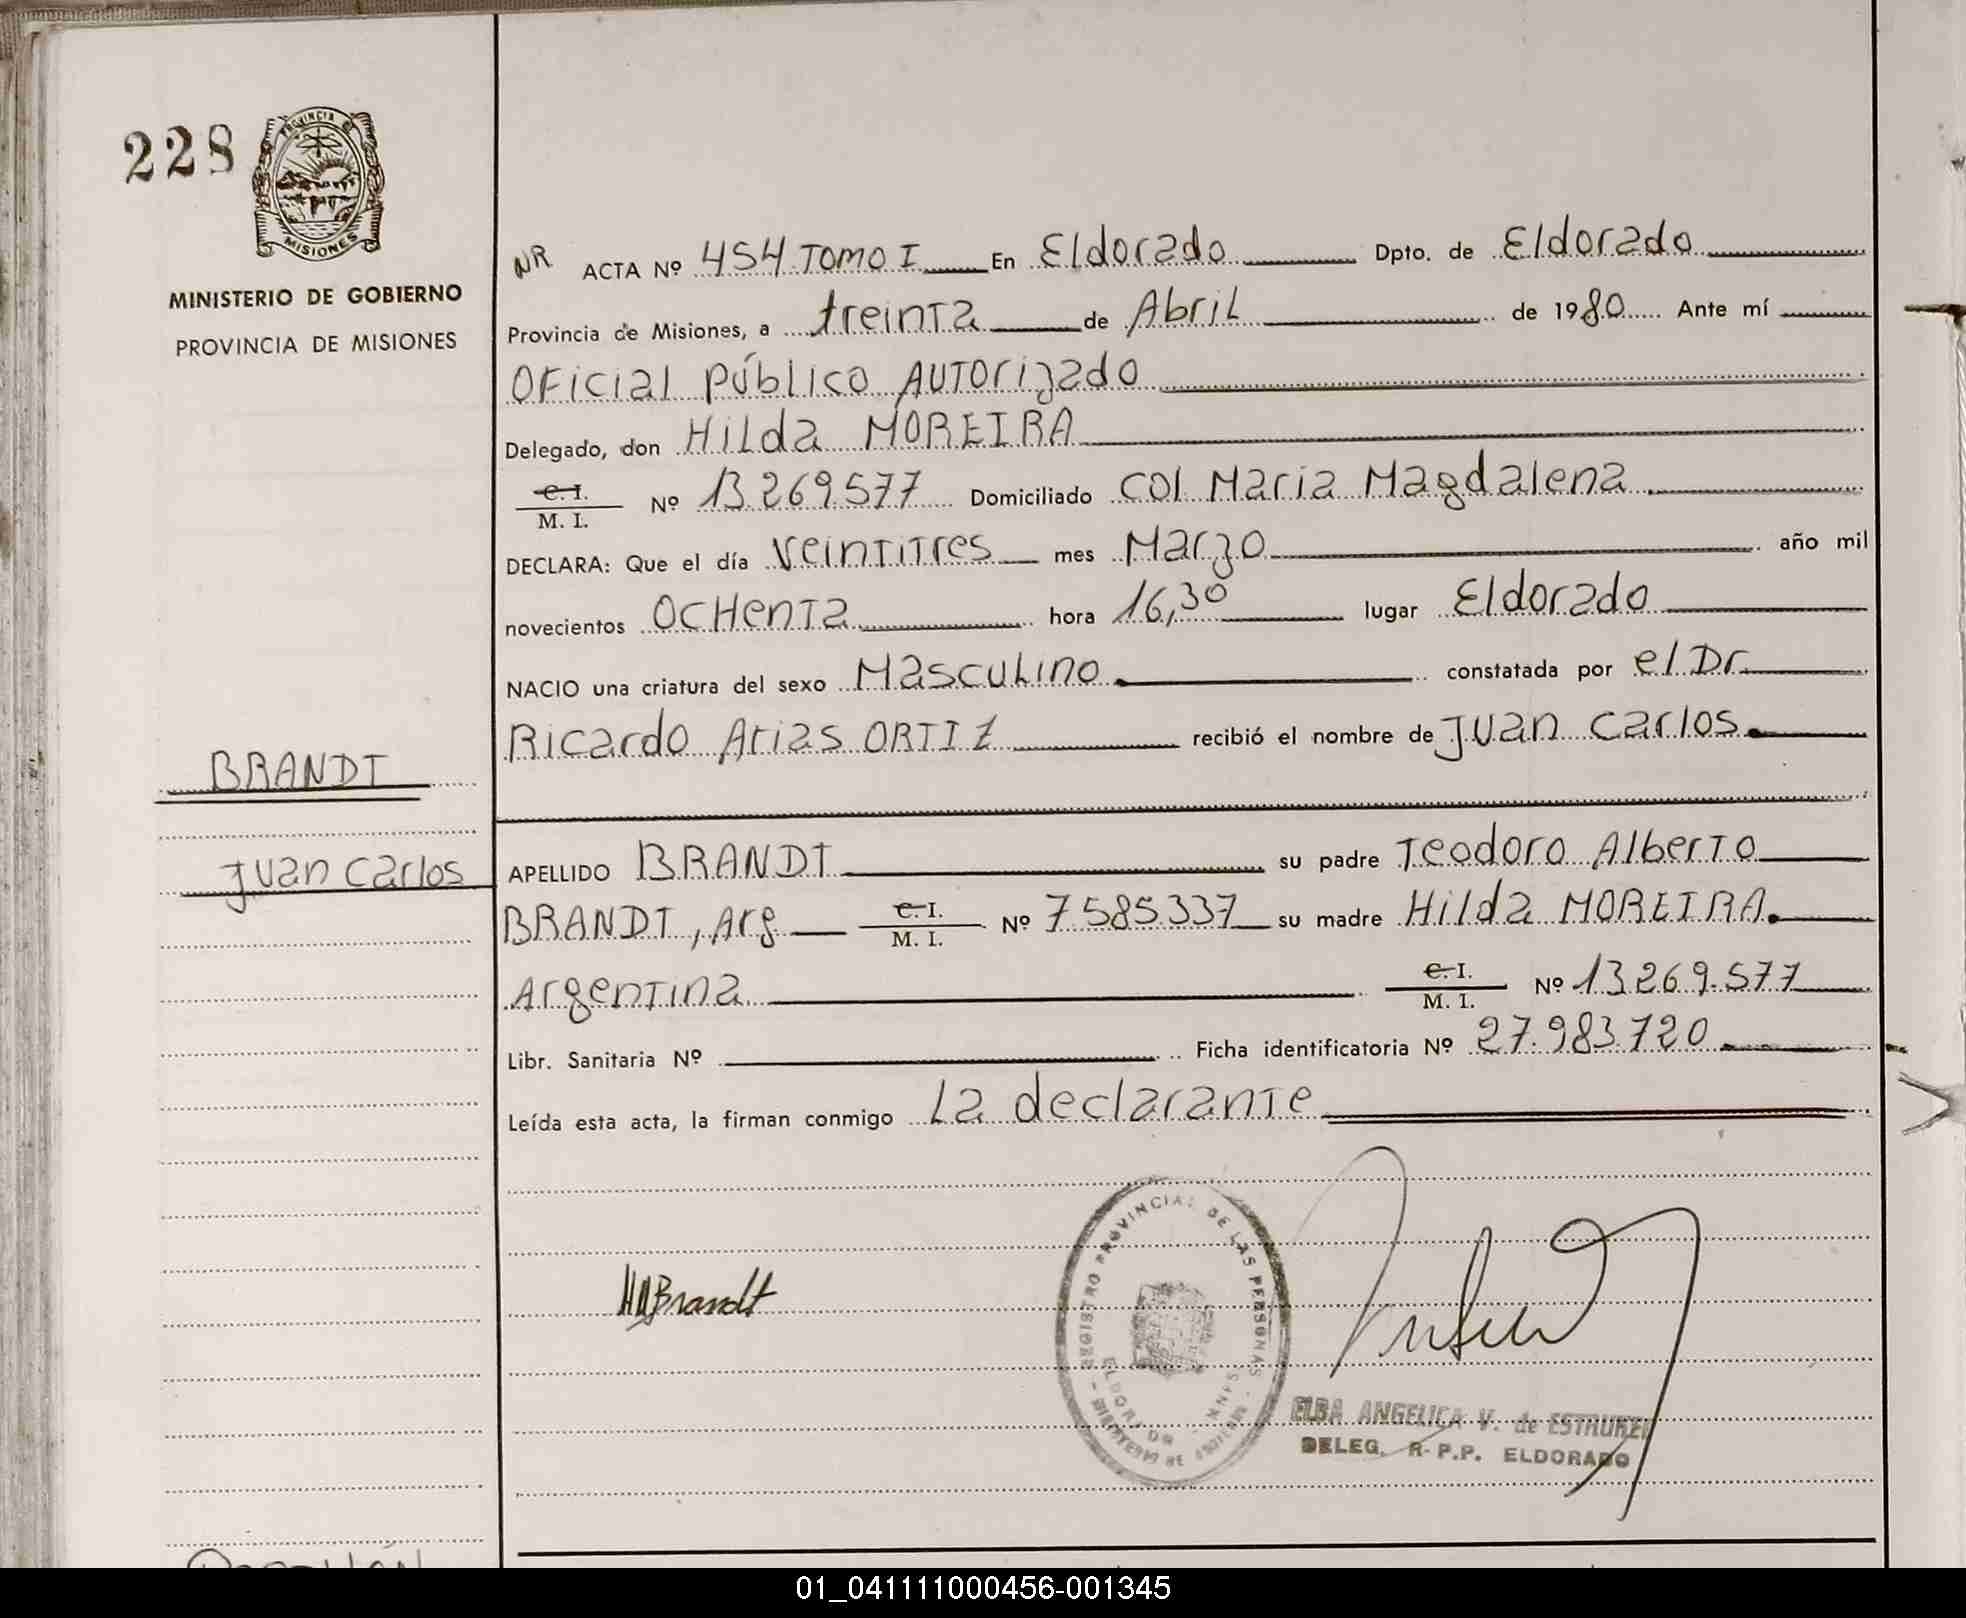 228
PROVINCIA D
MISIONES
MINISTERIO DE GOBIERNO
PROVINCIA DE MISIONES
NR ACTA Nº 454 TOMO I En Eldorado Dpto. de Eldorado
Provincia de Misiones, a treinta de Abril de 1980 Ante mí
Oficial Público Autorizado
Delegado, don Hilda MOREIRA
C. I.
M. I. Nº 13.269.577 Domiciliado Col Maria Magdalena
DECLARA: Que el día Veintitres mes Marzo año mil
novecientos Ochenta hora 16,30 lugar Eldorado
NACIO una criatura del sexo Masculino constatada por el Dr.
Ricardo Arias ORTIZ recibió el nombre de Juan Carlos
BRANDT
Juan Carlos
APELLIDO BRANDT su padre Teodoro Alberto
BRANDT, Arg C. I. M. I. Nº 7.585.337 su madre Hilda MOREIRA.
Argentina C. I. M. I. Nº 13.269.577
Libr. Sanitaria Nº Ficha identificatoria Nº 27.983.720
Leída esta acta, la firman conmigo La declarante
REGISTRO PROVINCIAL DE LAS PERSONAS
ELDORADO
HMBrandt
ELBA ANGELICA V. de
DELEG. R.P.P. ELDORADO
01_041111000456-001345